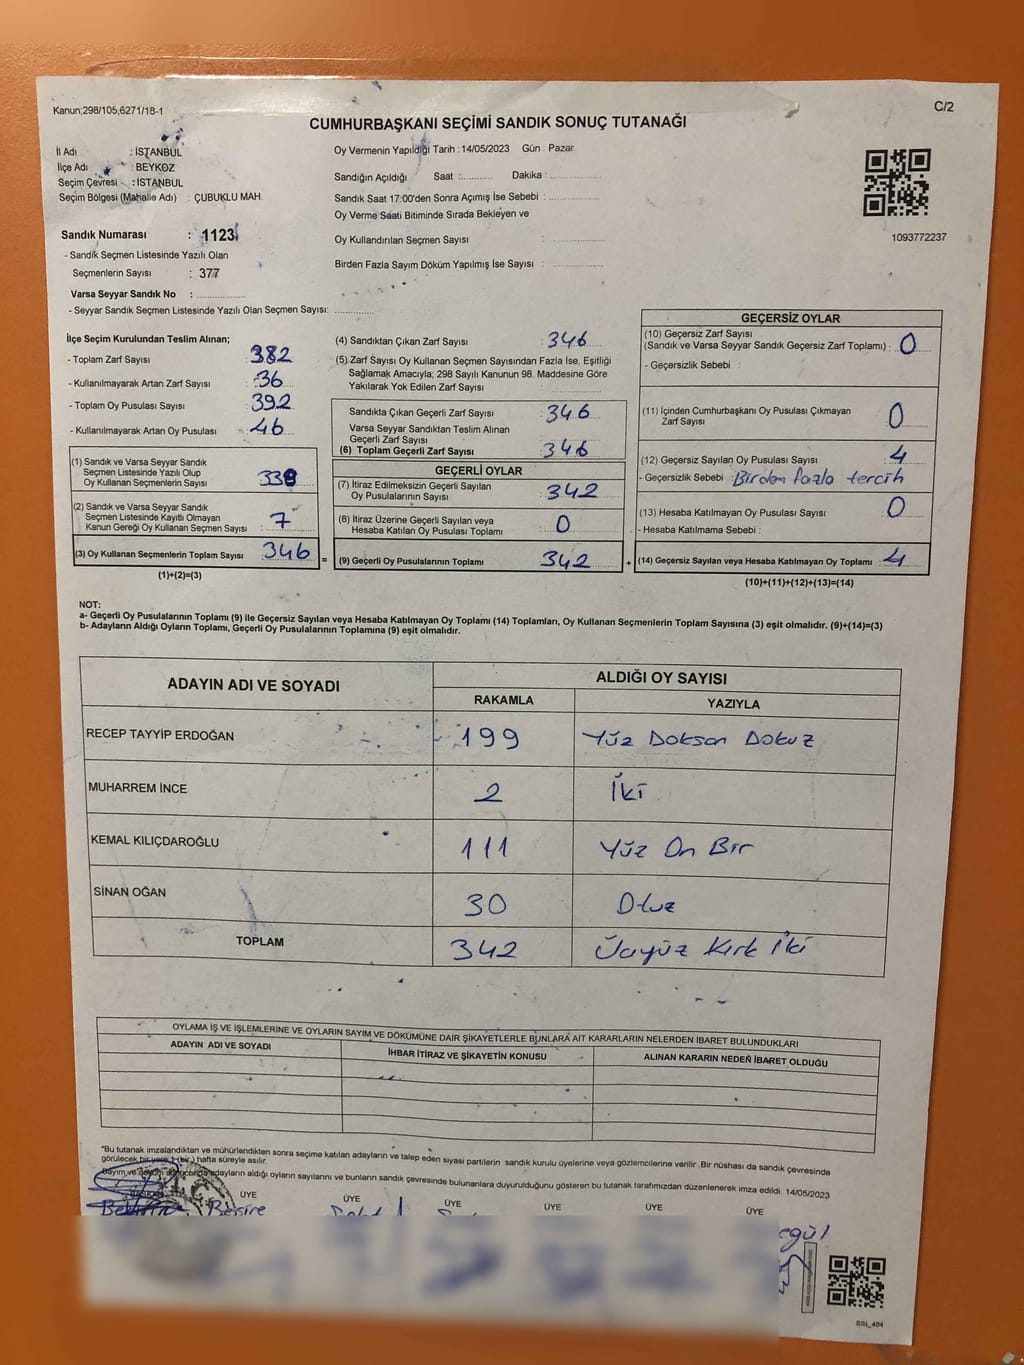 Kanun;298/105;6271/18-1
C/2
CUMHURBAŞKANI SEÇİMİ SANDIK SONUÇ TUTANAĞI
İl Adı : İSTANBUL
İlçe Adı : BEYKOZ
Seçim Çevresi : İSTANBUL
Seçim Bölgesi (Mahalle Adı) : ÇUBUKLU MAH.
Sandık Numarası : 1123
- Sandık Seçmen Listesinde Yazılı Olan
Seçmenlerin Sayısı : 377
Varsa Seyyar Sandık No : ............
- Seyyar Sandık Seçmen Listesinde Yazılı Olan Seçmen Sayısı: ............
Oy Vermenin Yapıldığı Tarih : 14/05/2023 Gün : Pazar
Sandığın Açıldığı Saat :.......... Dakika : ................
Sandık Saat 17:00'den Sonra Açımış İse Sebebi : ................
Oy Verme Saati Bitiminde Sırada Bekleyen ve
Oy Kullandırılan Seçmen Sayısı : ................
Birden Fazla Sayım Döküm Yapılmış İse Sayısı : ................
1093772237
İlçe Seçim Kurulundan Teslim Alınan;
- Toplam Zarf Sayısı : 382
- Kullanılmayarak Artan Zarf Sayısı : 36
- Toplam Oy Pusulası Sayısı : 392
- Kullanılmayarak Artan Oy Pusulası : 46
(1) Sandık ve Varsa Seyyar Sandık
Seçmen Listesinde Yazılı Olup
Oy Kullanan Seçmenlerin Sayısı : 339
(2) Sandık ve Varsa Seyyar Sandık
Seçmen Listesinde Kayıtlı Olmayan
Kanun Gereği Oy Kullanan Seçmen Sayısı : 7
(3) Oy Kullanan Seçmenlerin Toplam Sayısı : 346 =
(1)+(2)=(3)
(4) Sandıktan Çıkan Zarf Sayısı : 346
(5) Zarf Sayısı Oy Kullanan Seçmen Sayısından Fazla İse, Eşitliği
Sağlamak Amacıyla; 298 Sayılı Kanunun 98. Maddesine Göre
Yakılarak Yok Edilen Zarf Sayısı :
Sandıkta Çıkan Geçerli Zarf Sayısı : 346
Varsa Seyyar Sandıktan Teslim Alınan
Geçerli Zarf Sayısı :
(6) Toplam Geçerli Zarf Sayısı : 346
GEÇERLİ OYLAR
(7) İtiraz Edilmeksizin Geçerli Sayılan
Oy Pusulalarının Sayısı : 342
(8) İtiraz Üzerine Geçerli Sayılan veya
Hesaba Katılan Oy Pusulası Toplamı : 0
(9) Geçerli Oy Pusulalarının Toplamı : 342 +
GEÇERSİZ OYLAR
(10) Geçersiz Zarf Sayısı
(Sandık ve Varsa Seyyar Sandık Geçersiz Zarf Toplamı) : 0
- Geçersizlik Sebebi :
(11) İçinden Cumhurbaşkanı Oy Pusulası Çıkmayan
Zarf Sayısı : 0
(12) Geçersiz Sayılan Oy Pusulası Sayısı : 4
- Geçersizlik Sebebi : Birden fazla tercih
(13) Hesaba Katılmayan Oy Pusulası Sayısı : 0
- Hesaba Katılmama Sebebi :
(14) Geçersiz Sayılan veya Hesaba Katılmayan Oy Toplamı : 4
(10)+(11)+(12)+(13)=(14)
NOT:
a- Geçerli Oy Pusulalarının Toplamı (9) ile Geçersiz Sayılan veya Hesaba Katılmayan Oy Toplamı (14) Toplamları, Oy Kullanan Seçmenlerin Toplam Sayısına (3) eşit olmalıdır. (9)+(14)=(3)
b- Adayların Aldığı Oyların Toplamı, Geçerli Oy Pusulalarının Toplamına (9) eşit olmalıdır.
ADAYIN ADI VE SOYADI ALDIĞI OY SAYISI
RAKAMLA YAZIYLA
RECEP TAYYİP ERDOĞAN 199 Yüz Doksan Dokuz
MUHARREM İNCE 2 İki
KEMAL KILIÇDAROĞLU 111 Yüz On Bir
SİNAN OĞAN 30 Otuz
TOPLAM 342 Üçyüz Kırk İki
OYLAMA İŞ VE İŞLEMLERİNE VE OYLARIN SAYIM VE DÖKÜMÜNE DAİR ŞİKAYETLERLE BUNLARA AİT KARARLARIN NELERDEN İBARET BULUNDUKLARI
ADAYIN ADI VE SOYADI İHBAR İTİRAZ VE ŞİKAYETİN KONUSU ALINAN KARARIN NEDEN İBARET OLDUĞU
*Bu tutanak imzalandıktan ve mühürlendikten sonra seçime katılan adayların ve talep eden siyasi partilerin sandık kurulu üyelerine veya gözlemcilerine verilir. Bir nüshası da sandık çevresinde
görülecek bir yere 1 (bir) hafta süreyle asılır.
Sayım ve döküm sonucunda adayların aldığı oyların sayılarını ve bunların sandık çevresinde bulunanlara duyurulduğunu gösteren bu tutanak tarafımızdan düzenlenerek imza edildi. 14/05/2023
BAŞKAN ÜYE ÜYE ÜYE ÜYE ÜYE ÜYE
SSI_404